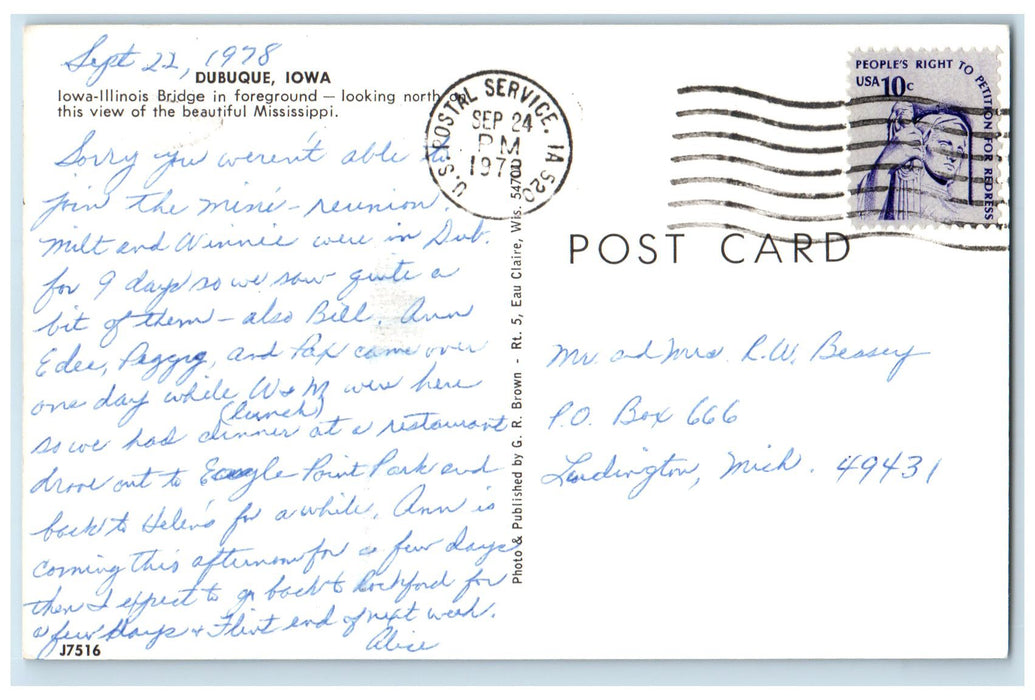 Sept 22, 1978
DUBUQUE, IOWA
Iowa-Illinois Bridge in foreground — looking north
this view of the beautiful Mississippi.
Sorry you weren't able to
join the mini-reunion.
Milt and Winnie were in Dub.
for 9 days so we saw quite a
bit of them - also Bill, Ann
Edee, Peggy, and Pax came over
one day while W & M were here
(lunch)
so we had dinner at a restaurant
drove out to Eagle Point Park and
back to Helen's for a while, Ann is
coming this afternoon for a few days
then I expect to go back to Rockford for
a few days & Flint end of next week.
Alice
J7516
Photo & Published by G. R. Brown - Rt. 5, Eau Claire, Wis. 54701
U.S. POSTAL SERVICE. IA 520
SEP 24
PM
1978
PEOPLE'S RIGHT TO PETITION FOR REDRESS
USA 10c
POST CARD
Mr. and Mrs. R.W. Beasey
P.O. Box 666
Ludington, Mich. 49431